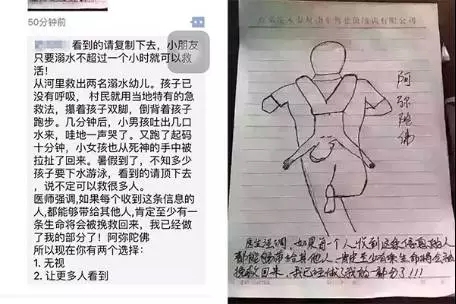 50分钟前
看到的请复制下去，小朋友
只要溺水不超过一个小时就可以救
活！
从河里救出两名溺水幼儿。孩子已
没有呼吸，村民就用当地特有的急
救法，攥着孩子双脚，倒背着孩子
跑步。几分钟后，小男孩吐出几口
水来，哇地一声哭了。又跑了起码
十分钟，小女孩也从死神的手中被
拉扯了回来。暑假到了，不知多少
孩子要下水游泳，看到的请顶下去
，说不定可以救很多人。
医师强调，如果每个收到这条信息的
人,都能够带给其他人,肯定至少有一
条生命将会被挽救回来，我已经做
了我的部分了！阿弥陀佛
所以现在你有两个选择：
1. 无视
2. 让更多人看到
阿弥陀佛
医生强调，如果每一个人收到这条信息的人
都能够带给其他人，肯定至少有一条生命将会被
挽救回来，我已经做了我的一部分了!!!